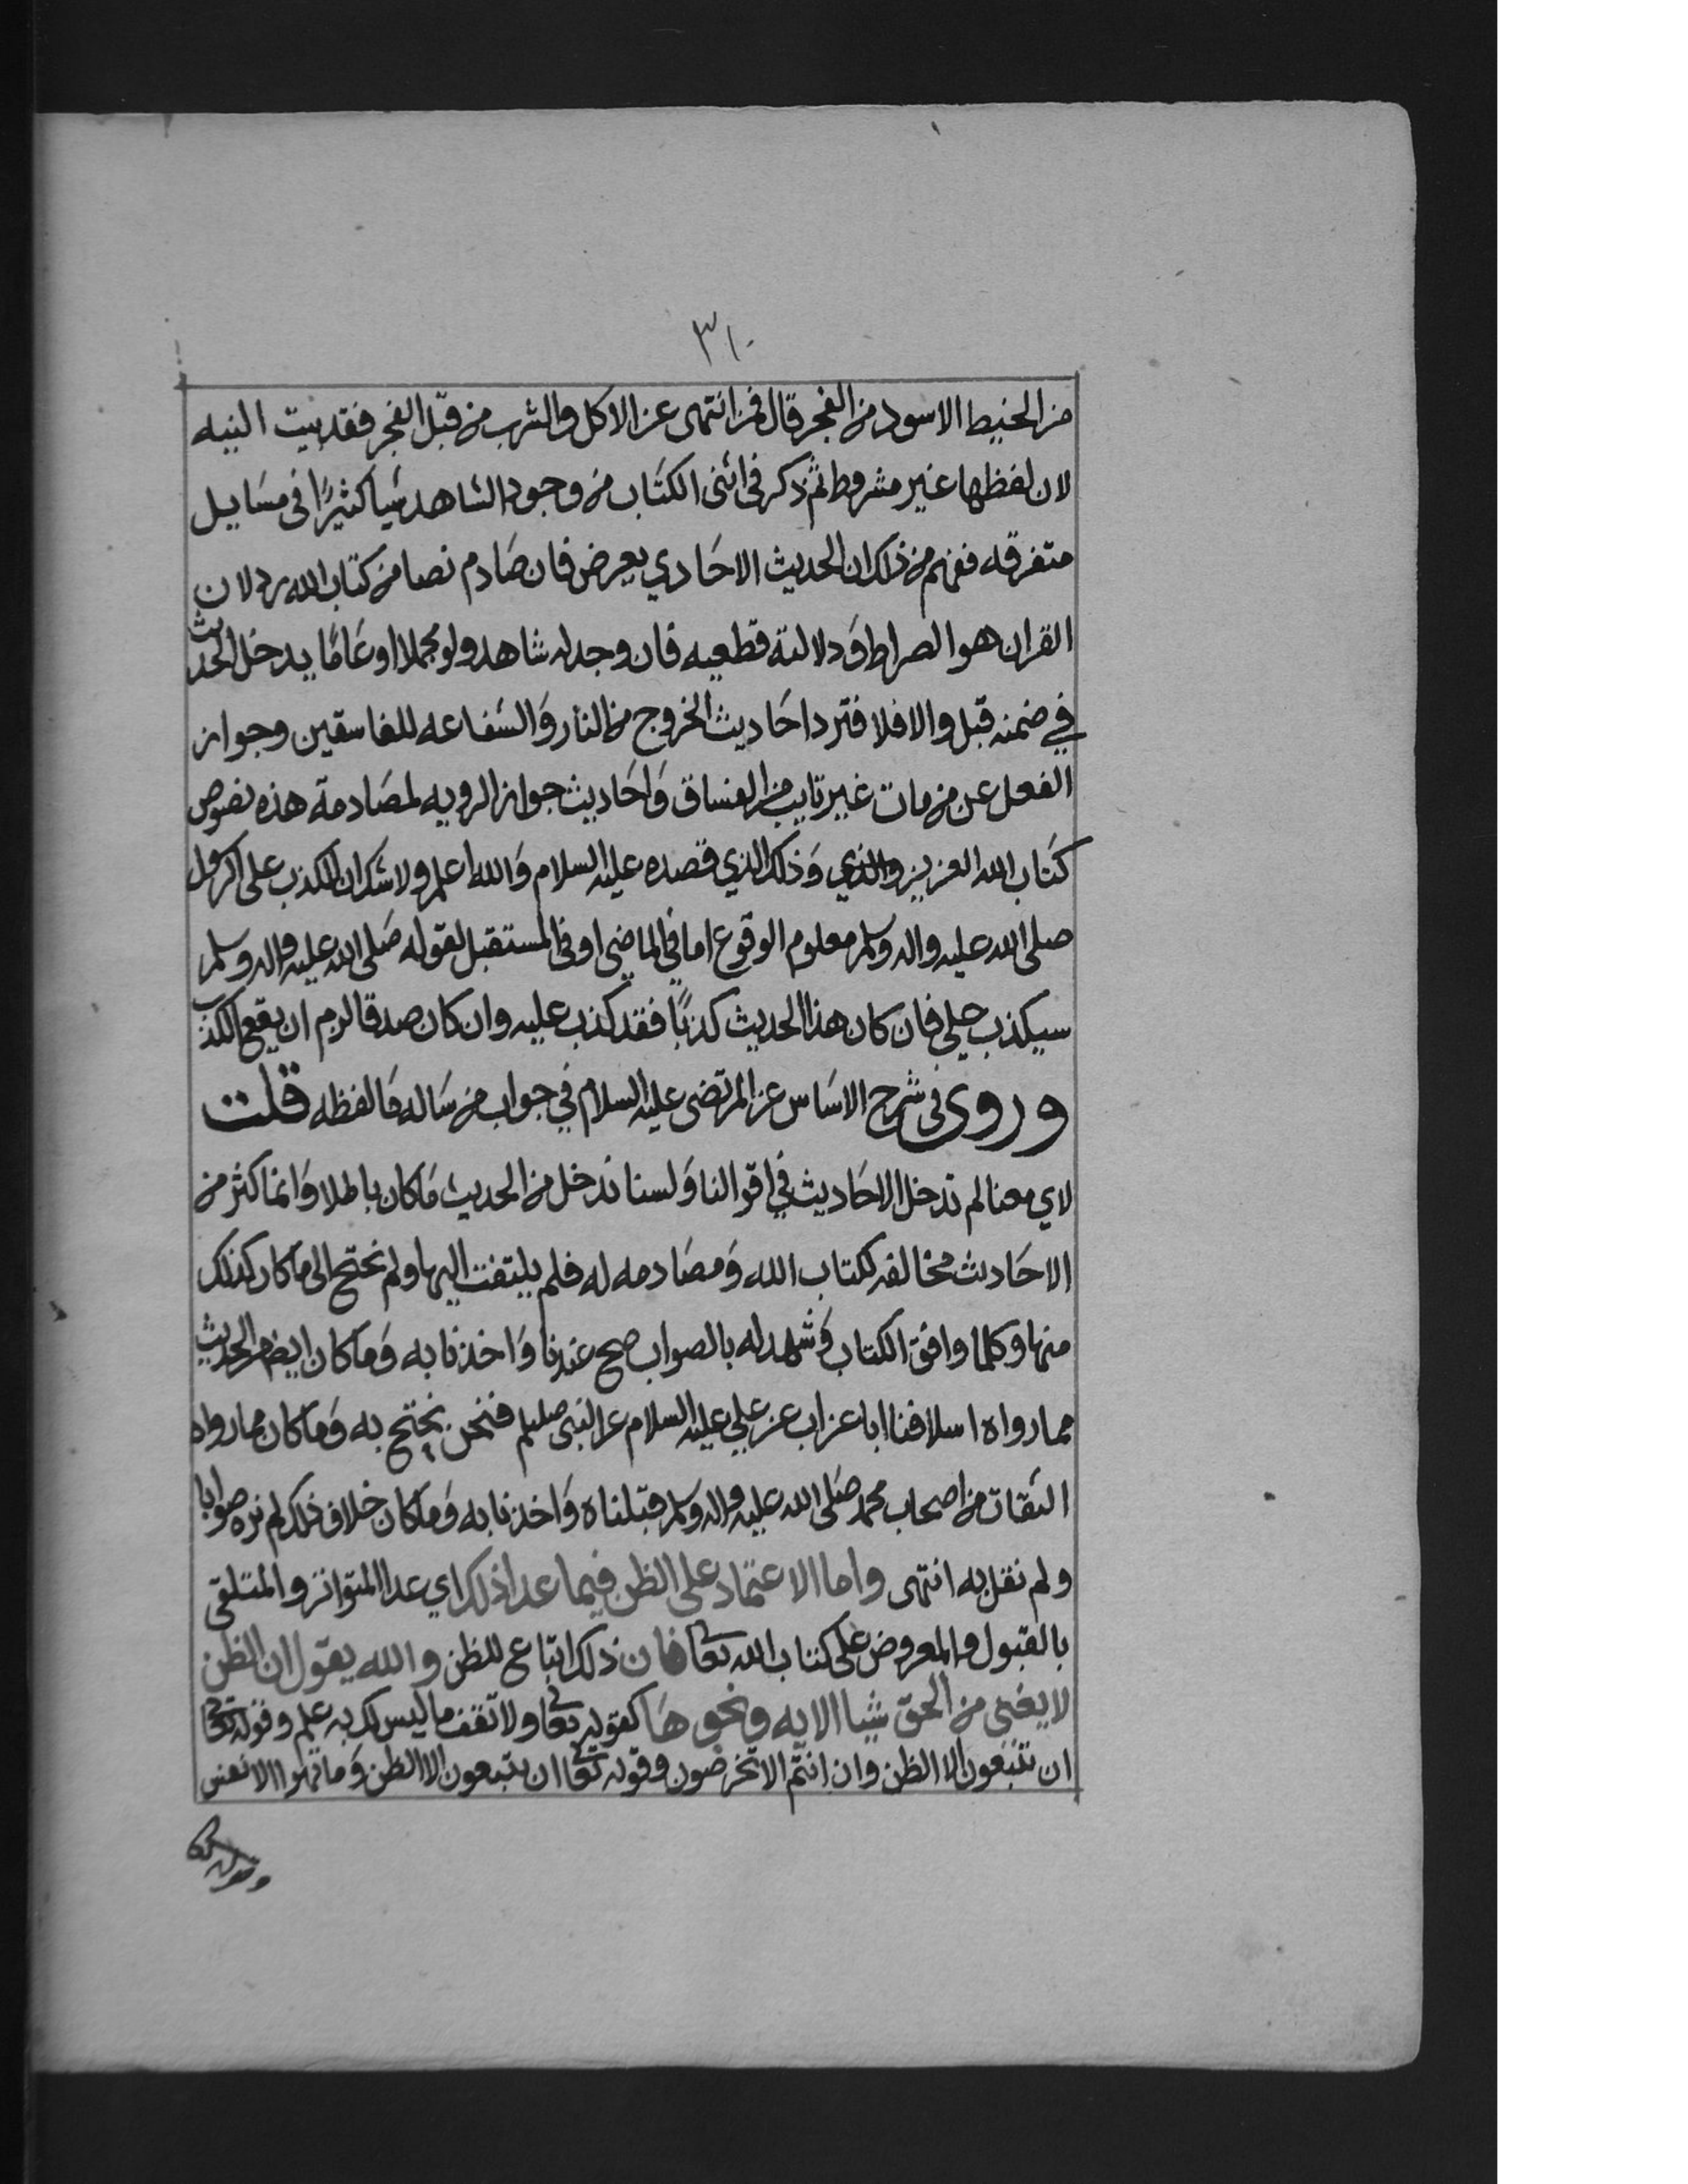 ٣١٠
من الخيط الاسود من الفجر قال فمن انتهى عن الاكل والشرب من قبل الفجر فقد بيت النيه
لان لفظها غير مشروط ثم ذكر في اثنى الكتاب من وجود الشاهد شيا كثيرًا في مسَايل
متفرقه ففهم من ذلك ان الحديث الاحَادي يعرض فان صَادم نصا من كتاب الله رد لان
القران هو الصراط وَدلالته قطعيه فان وجد له شاهد ولو مجملا او عَامًا يدخل الحديث
في ضمنه قبل والا فلا فترد احَاديث الخروج من النار وَالشفاعه للفاسقين وجواز
الفعل عن من مات غير تايب من الفساق وَاحَاديث جواز الرويه لمصَادمة هذه نصوص
كتَاب الله العزيز والذي وَذلك الذي قصده عليه السلام وَالله اعلم ولا شك ان الكذب على الرسول
صلى الله عليه واله وسلم معلوم الوقوع اما في الماضي او في المستقبل لقوله صَلى الله عليه واله وسلم
سيكذب علي فان كان هذا الحديث كذبًا فقد كذب عليه وان كان صدقا لزم ان يقع الكذب
وروى في شرح الاسَاس عن المرتضى عليه السلام في جواب من سَاله مَا لفظه قلت
لاي معنا لم ندخل الاحَاديث في اقوالنا وَلسنا ندخل من الحديث مَا كان باطلا وَانما كثر من
الاحَاديث مخالفه لكتاب الله وَمصَادمه له فلم يلتفت اليها ولم نحتج الى ما كان كذلك
منها وكلما وافق الكتاب وَشهد له بالصواب صح عندنا وَاخذنا به وَمَا كان ايضا من الحديث
مما رواه اسلافنا ابا عن اب عن علي عليه السلام عن النبي صليلم فنحن نحتج به وَمَا كان مما رواه
الثقات من اصحاب محمد صَلى الله عليه واله وسلم قبلناه وَاخذنا به وَمَا كان خلاف ذلك لم نره صوابا
ولم نقل به انتهى واما الاعتماد على الظن فيما عدا ذلك اي عدا المتواتر والمتلقى
بالقبول والمعروض على كتاب الله تعا فان ذلك اتباع للظن والله يقول ان الظن
لا يغني من الحق شيا الايه ونحوها كقوله تعا ولا تقف ما ليس لك به علم وقوله تعا
ان تتبعون الا الظن وان انتم الا تخرصون وقوله تعا ان يتبعون الا الظن وَما تهوا الانفس
وقوله تعا